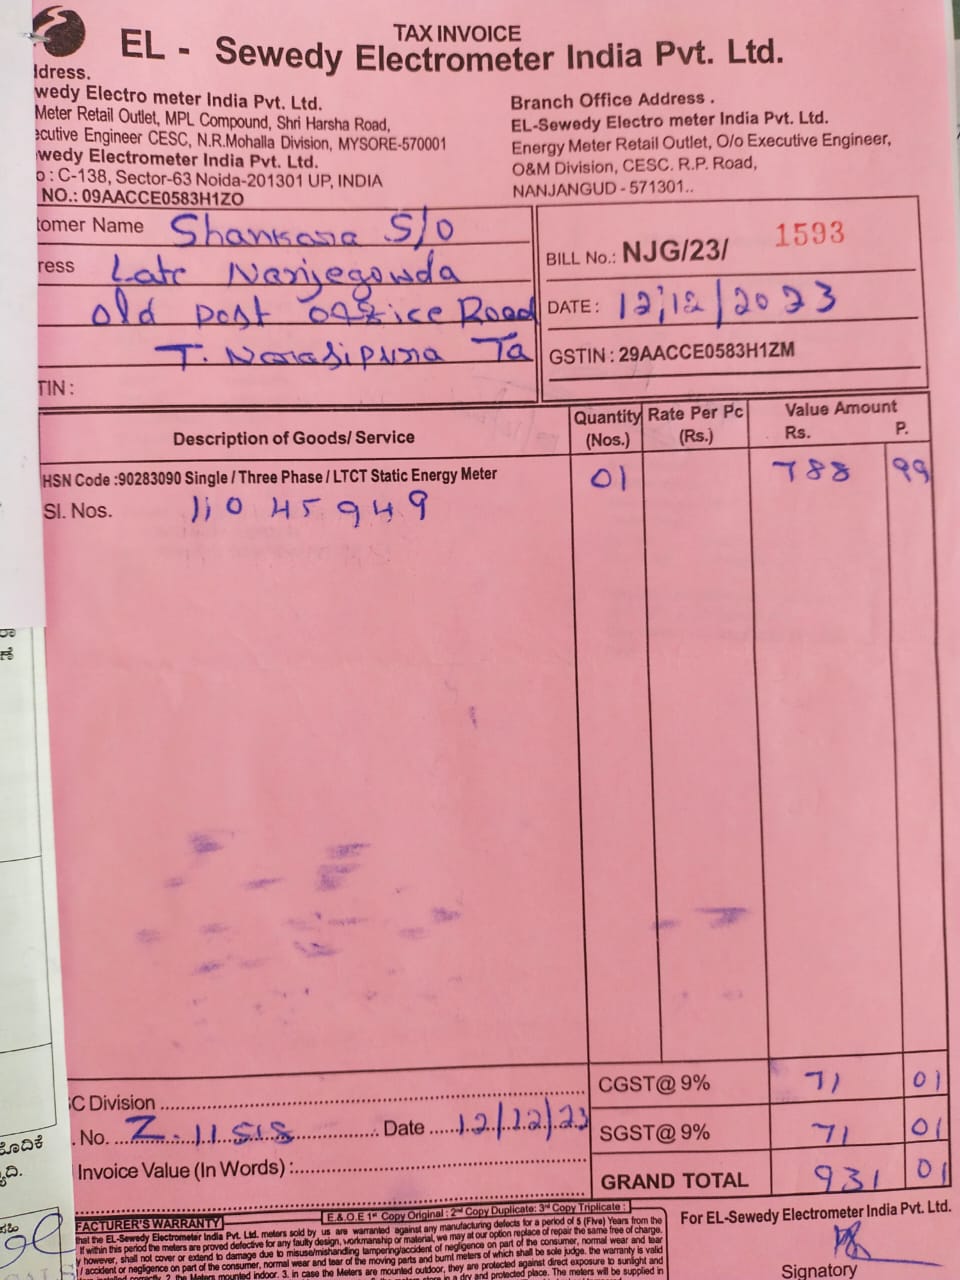 TAX INVOICE
EL - Sewedy Electrometer India Pvt. Ltd.
ddress.
wedy Electro meter India Pvt. Ltd.
Meter Retail Outlet, MPL Compound, Shri Harsha Road,
ecutive Engineer CESC, N.R.Mohalla Division, MYSORE-570001
wedy Electrometer India Pvt. Ltd.
o : C-138, Sector-63 Noida-201301 UP, INDIA
NO.: 09AACCE0583H1ZO
Branch Office Address .
EL-Sewedy Electro meter India Pvt. Ltd.
Energy Meter Retail Outlet, O/o Executive Engineer,
O&M Division, CESC. R.P. Road,
NANJANGUD - 571301..
tomer Name Shankara S/o
ress Late Narijegowda
old post office Road
T. Narasipura Ta
TIN :
BILL No.: NJG/23/ 1593
DATE : 12/12/2023
GSTIN : 29AACCE0583H1ZM
Description of Goods/ Service Quantity (Nos.) Rate Per Pc (Rs.) Value Amount Rs. P.
HSN Code :90283090 Single / Three Phase / LTCT Static Energy Meter 01 788 99
Sl. Nos. 11045949
CGST@ 9% 71 01
SGST@ 9% 71 01
GRAND TOTAL 931 01
C Division
. No. Z-11515 Date 12/12/23
Invoice Value (In Words) :
E.& O.E 1st Copy Original : 2nd Copy Duplicate: 3rd Copy Triplicate :
FACTURER'S WARRANTY
that the EL-Sewedy Electrometer India Pvt. Ltd. meters sold by us are warranted against any manufacturing defects for a period of 5 (Five) Years from the
If within this period the meters are proved defective for any faulty design, workmanship or material, we may at our option replace of repair the same free of charge.
/ however, shall not cover or extend to damage due to misuse/mishandling tampering/accident of negligence on part of the consumer, normal wear and tear
/ accident or negligence on part of the consumer, normal wear and tear of the moving parts and burnt meters of which shall be sole judge. the warranty is valid
For EL-Sewedy Electrometer India Pvt. Ltd.
Signatory